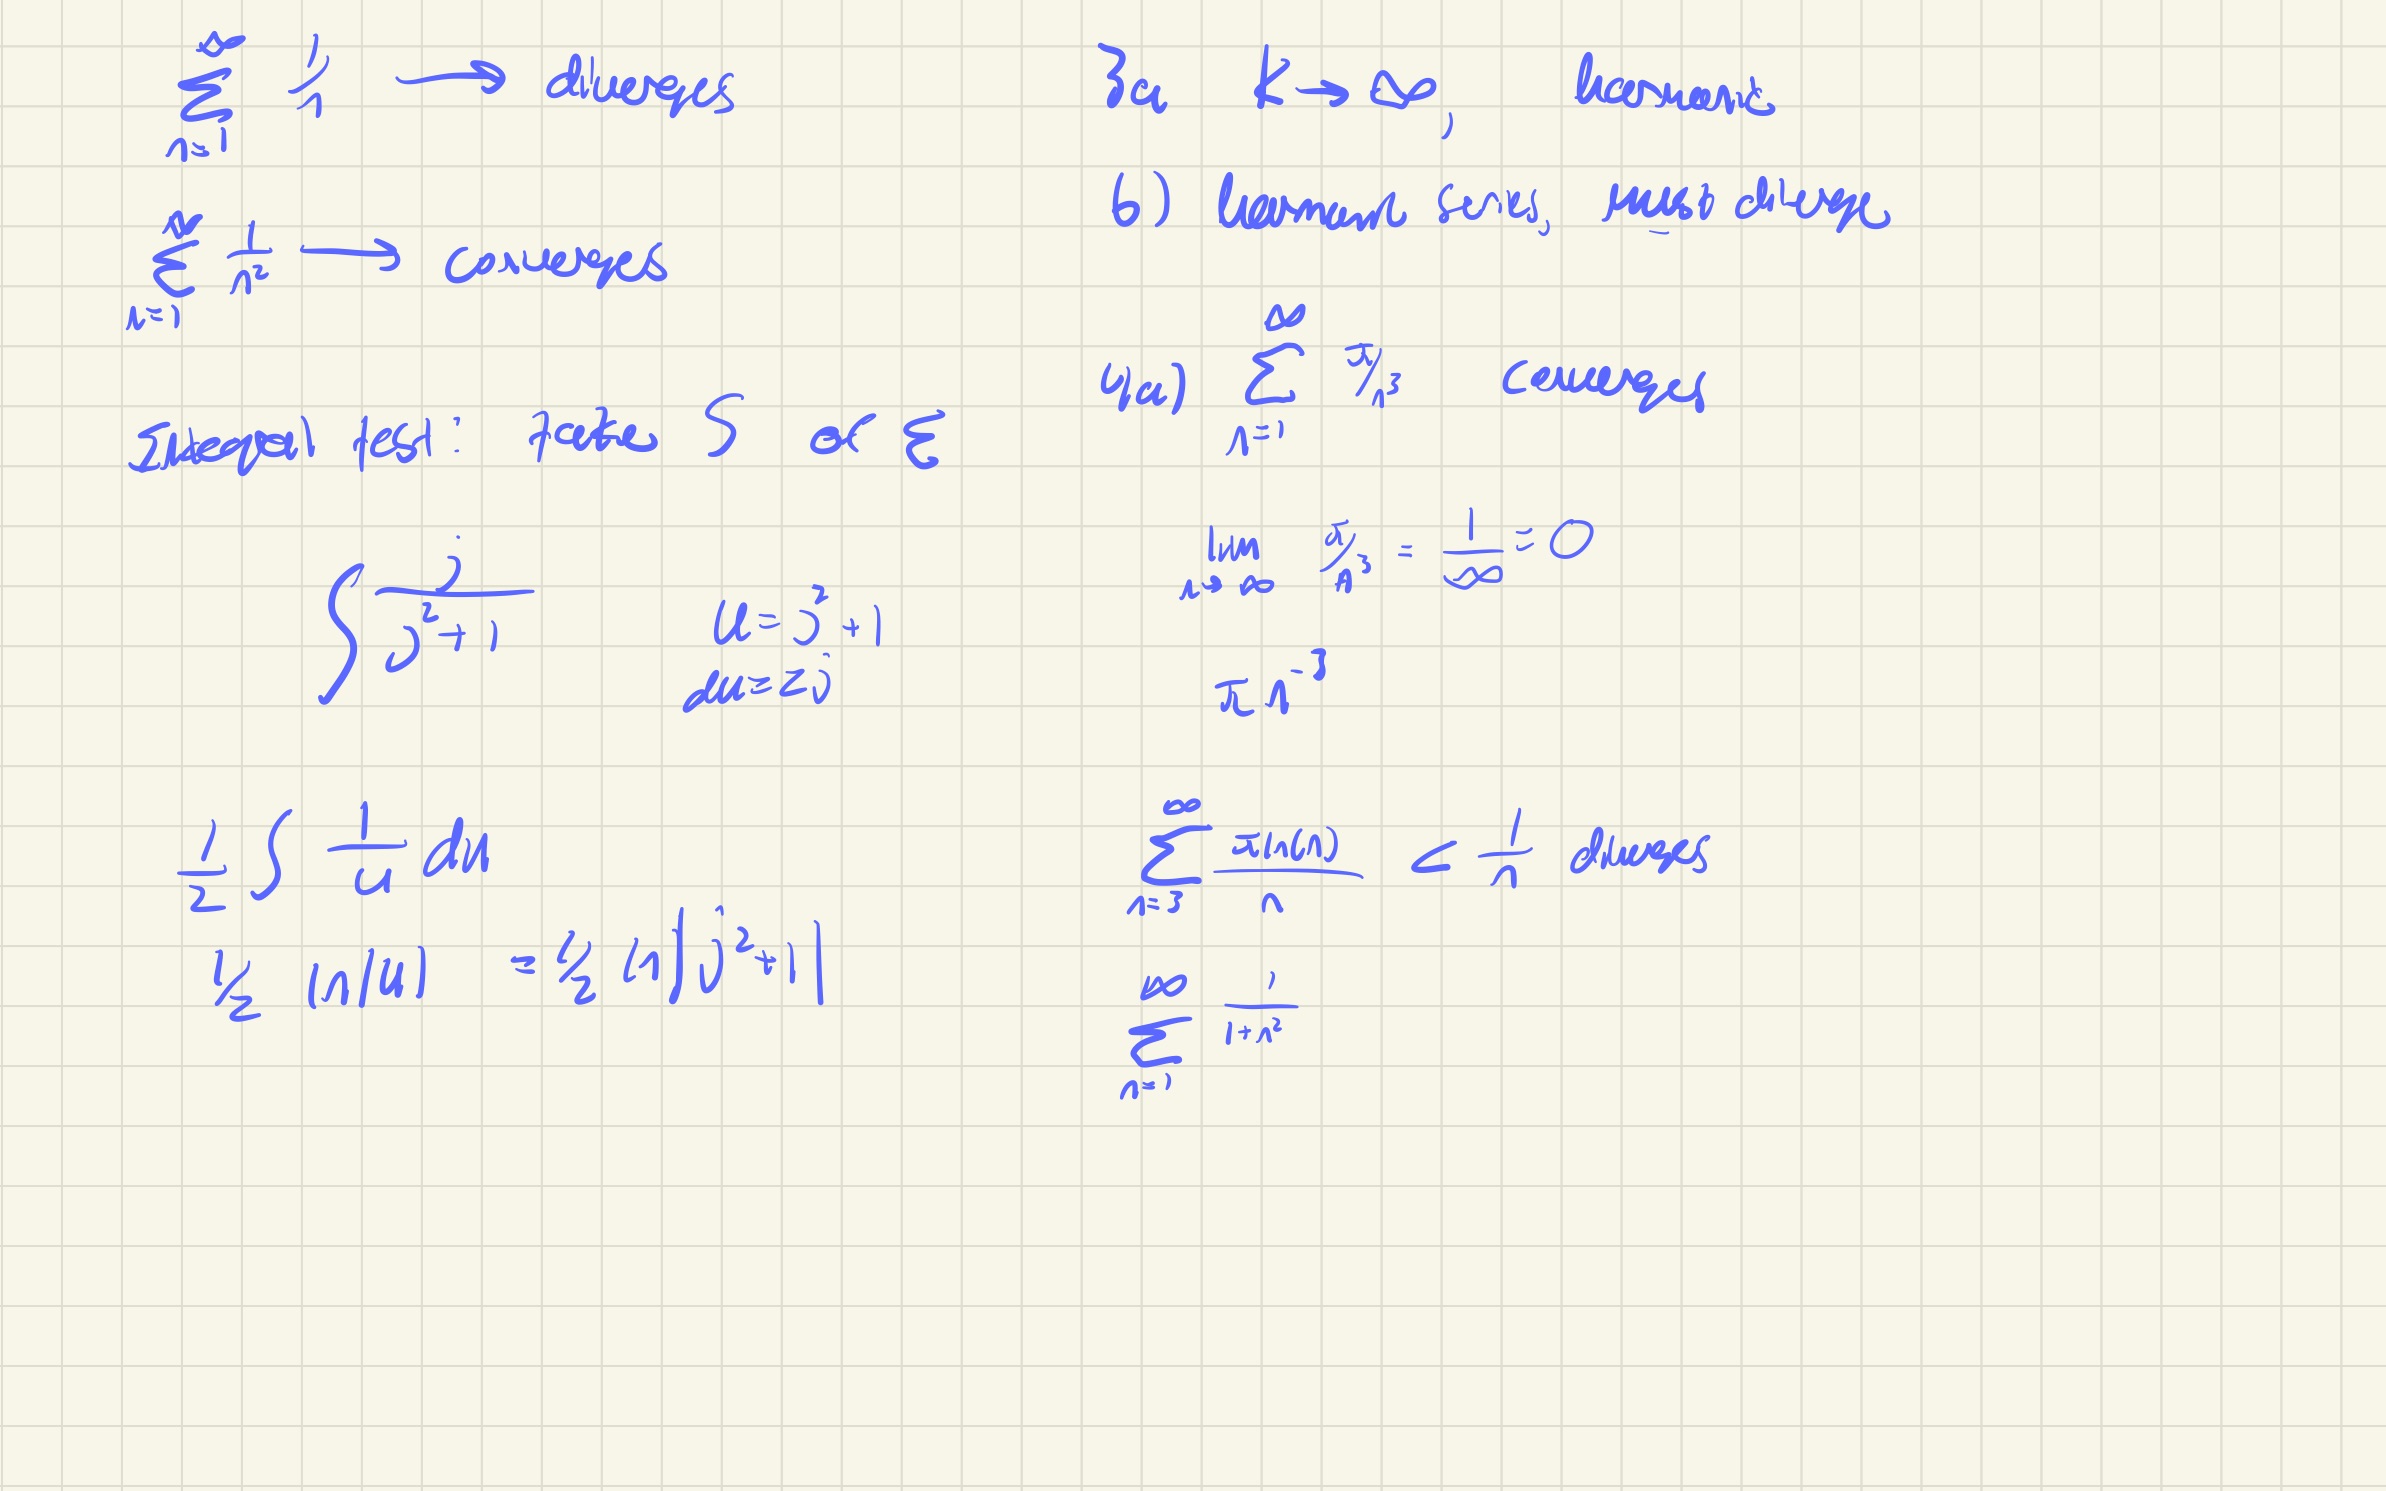 ∞
∑ 1/n → diverges
n=1
∞
∑ 1/n² → converges
n=1
Integral test: take ∫ of ∑
∫ j/(j²+1)
u = j²+1
du = 2j
1/2 ∫ 1/u du
1/2 ln|u| = 1/2 ln|j²+1|
3a k→∞, harmonic
b) harmonic series, must diverge
∞
4a) ∑ π/n³ converges
n=1
lim π/n³ = 1/∞ = 0
n→∞
π n⁻³
∞
∑ π ln(n)/n ≤ 1/n diverges
n=3
∞
∑ 1/(1+n²)
n=1